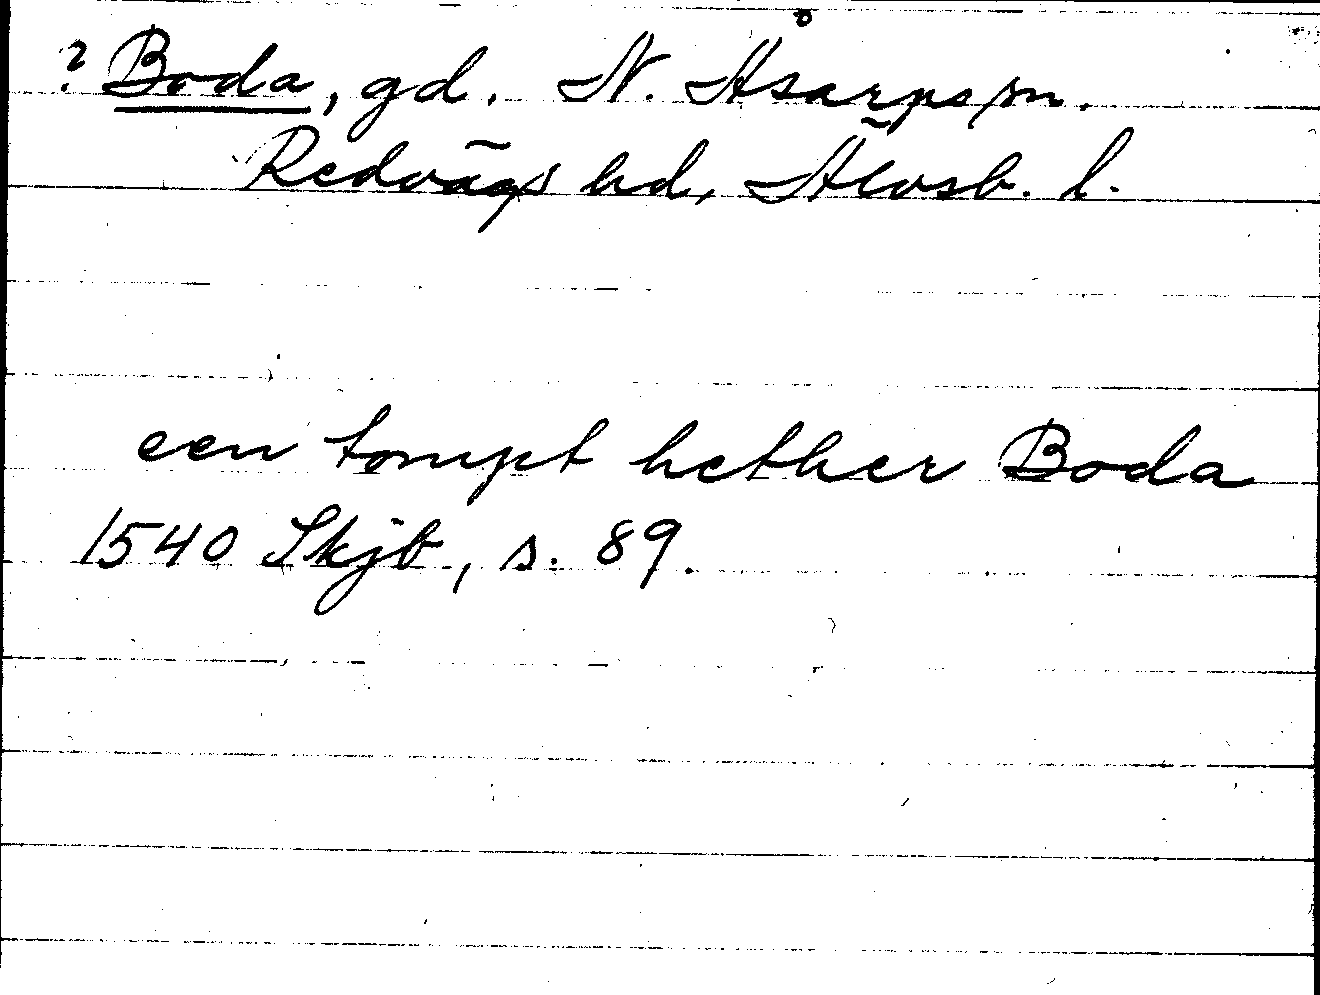 ? Boda, gd. N. Åsarps sn.
Redvägs hd, Älvsb. l.
een tompt hether Boda
1540 Skjb, s. 89.